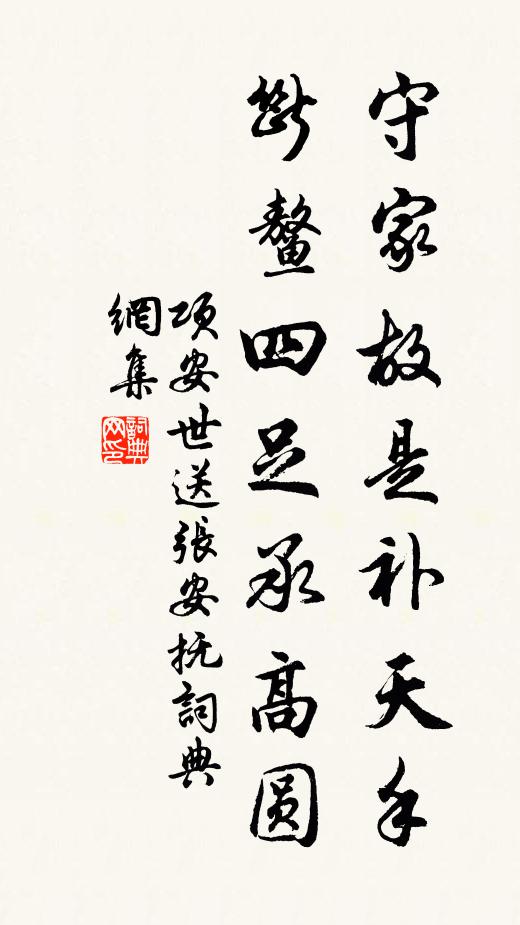 守家故是补天手
断鳌四足承高圆
项安世送張安抚詞典
網集
詞典
网印